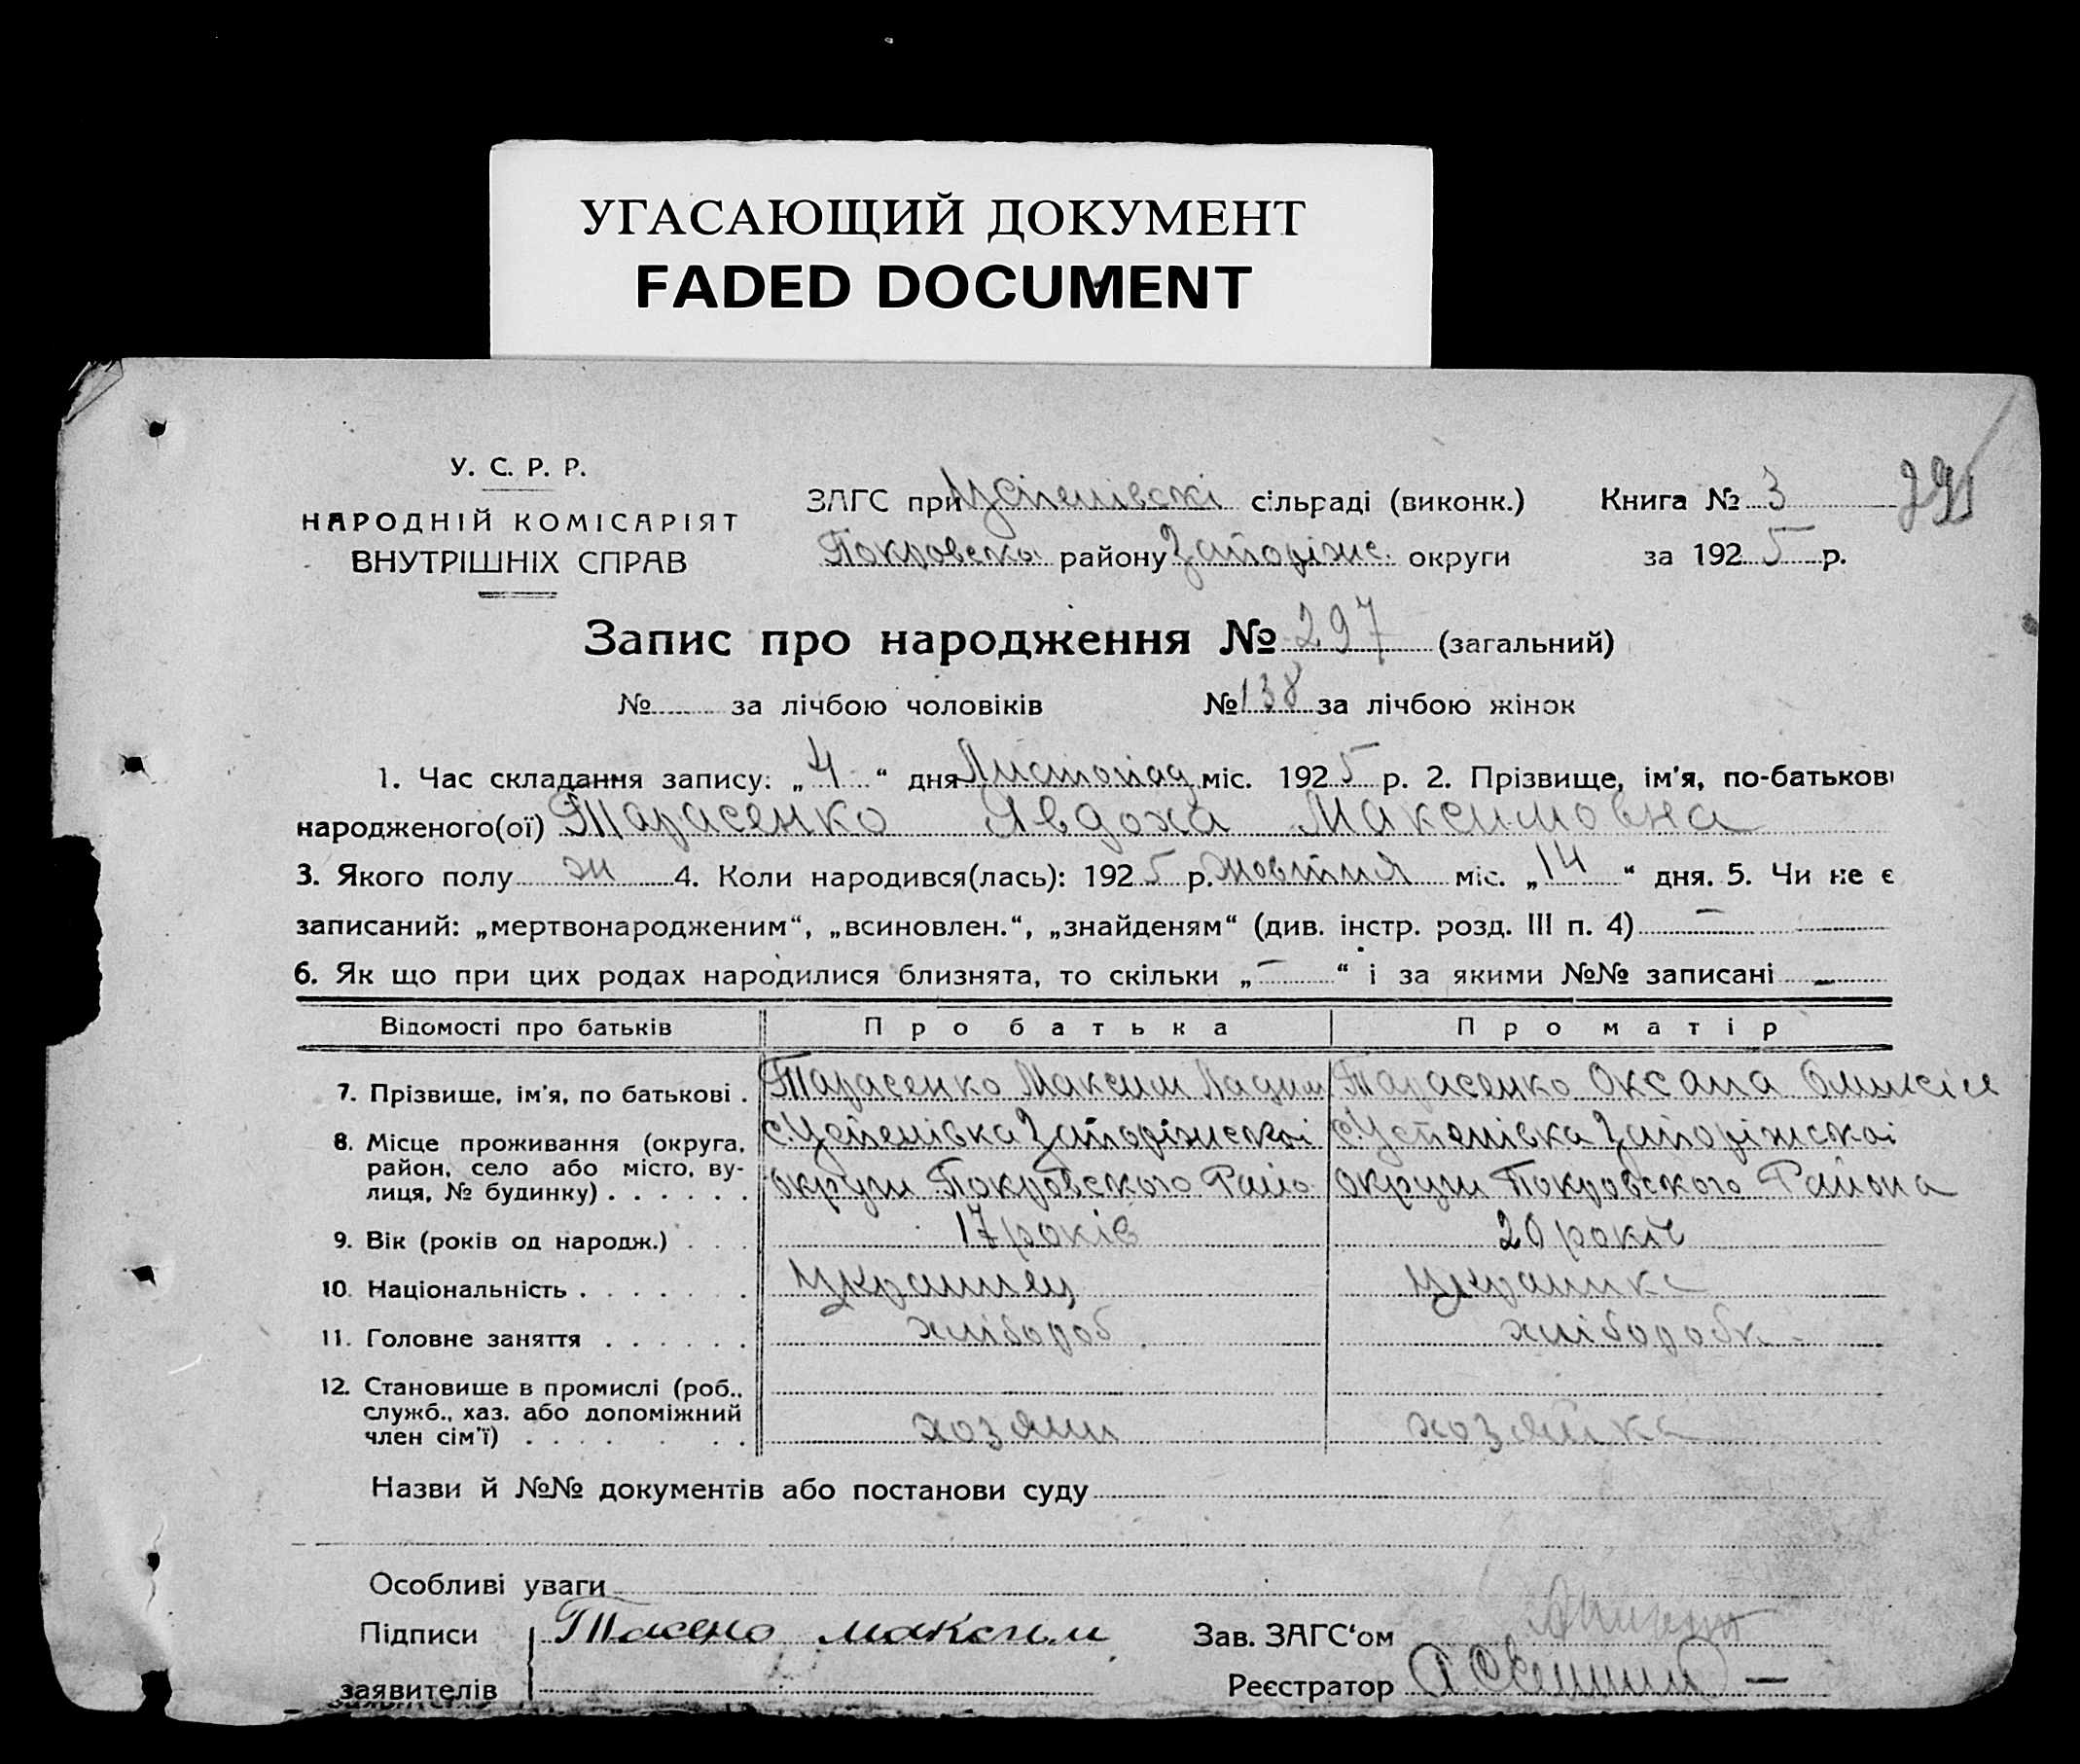 УГАСАЮЩИЙ ДОКУМЕНТ
FADED DOCUMENT
У. С. Р. Р.
НАРОДНІЙ КОМІСАРІЯТ
ВНУТРІШНІХ СПРАВ
ЗАГС при Успенівскі сільраді (виконк.)
Покровско района Запоріжс. округи
Книга № 3
за 1925 р.
Запис про народження № 297 (загальний)
№ за лічбою чоловіків № 138 за лічбою жінок
1. Час складання запису: „4“ дня Листопад міс. 1925 р. 2. Прізвище, ім'я, по-батькові
народженого(ої) Тарасенко Явдоха Максимовна
3. Якого полу ж 4. Коли народився(лась): 1925 р. жовтня міс. „14“ дня. 5. Чи не є
записаний: „мертвонародженим“, „всиновлен.“, „знайденям“ (див. інстр. розд. III п. 4) —
6. Як що при цих родах народилися близнята, то скільки „—“ і за якими №№ записані —
Відомості про батьків Про батька Про матір
7. Прізвище, ім'я, по батькові . Тарасенко Максим Тарасенко Оксана
8. Місце проживання (округа, район, село або місто, вулиця, № будинку) . . . . . .
с. Успенівка Запоріжської округи Покровского Райо
с. Успенівка Запоріжської округи Покровского Района
9. Вік (років од народж.) . . . 17 років 20 років
10. Національність . . . . . . . українец українка
11. Головне заняття . . . . . . хлібороб хлібороbк
12. Становище в промислі (роб., служб., хаз. або допоміжний член сім'ї) . . . . . . . хозяин хозяйка
Назви й №№ документів або постанови суду
Особливі уваги
Підписи заявителів Максим
Зав. ЗАГС‘ом
Реєстратор